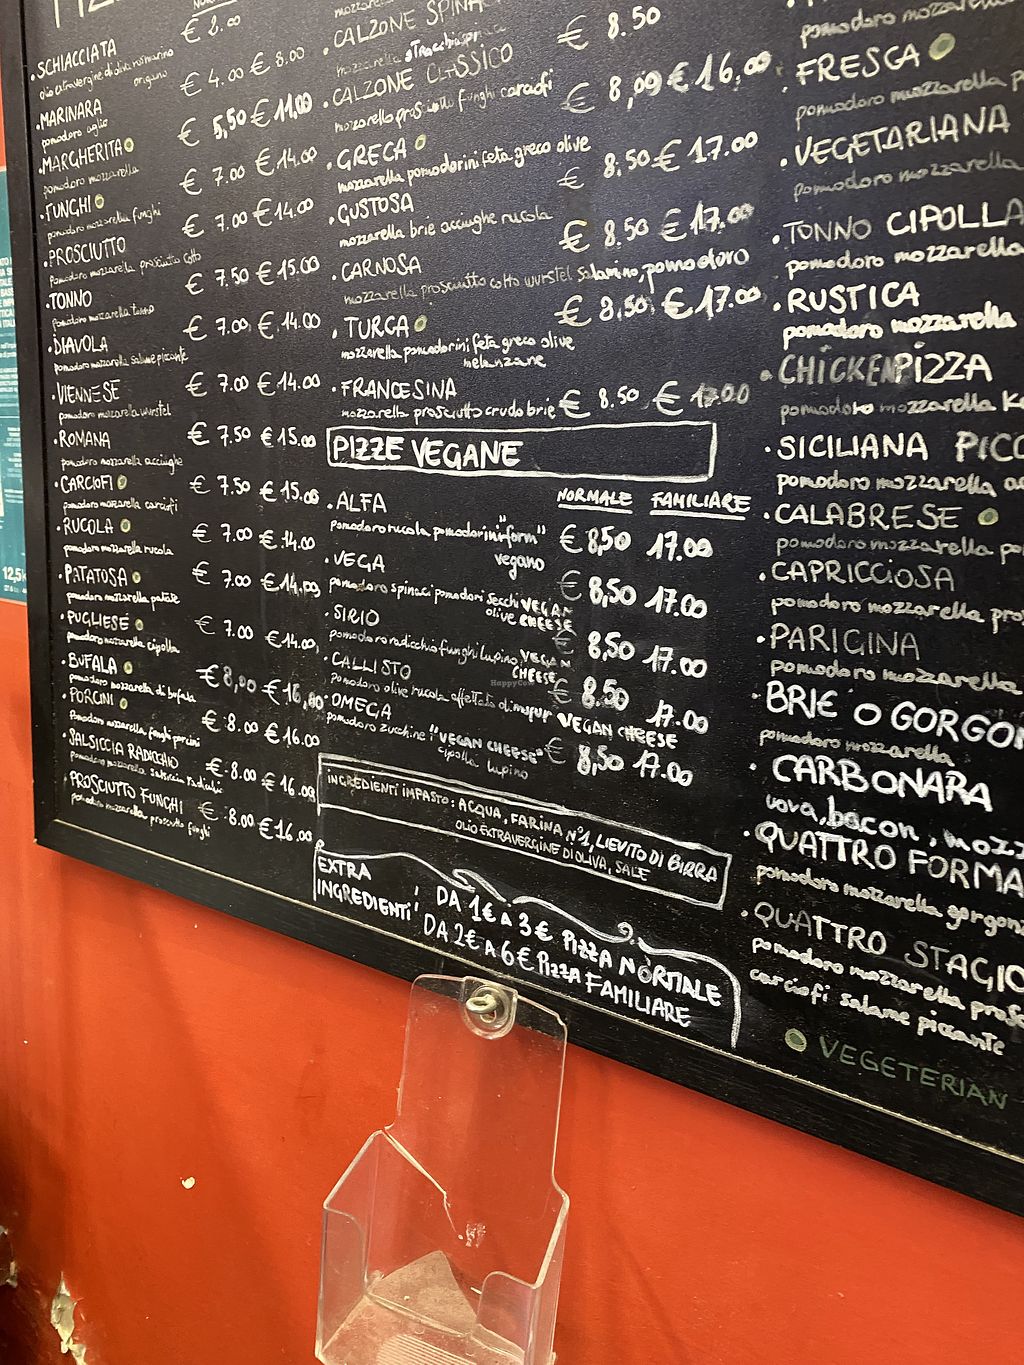 € 8.00
· SCHIACCIATA
olio extravergine di oliva rosmarino
origano
€ 4.00 € 8.00
· MARINARA
pomodoro aglio
€ 5,50 € 11,00
· MARGHERITA
pomodoro mozzarella
€ 7.00 € 14.00
· FUNGHI
pomodoro mozzarella funghi
€ 7.00 € 14.00
· PROSCIUTTO
pomodoro mozzarella prosciutto cotto
€ 7.50 € 15.00
· TONNO
pomodoro mozzarella tonno
€ 7.00 € 14.00
· DIAVOLA
pomodoro mozzarella salame piccante
€ 7.00 € 14.00
· VIENNESE
pomodoro mozzarella wurstel
€ 7.50 € 15.00
· ROMANA
pomodoro mozzarella acciughe
€ 7.50 € 15.00
· CARCIOFI
pomodoro mozzarella carciofi
€ 7.00 € 14.00
· RUCOLA
pomodoro mozzarella rucola
€ 7.00 € 14.00
· PATATOSA
pomodoro mozzarella patate
€ 7.00 € 14.00
· PUGLIESE
pomodoro mozzarella cipolla
· BUFALA
pomodoro mozzarella di bufala
€ 8,00 € 16,00
· PORCINI
pomodoro mozzarella funghi porcini
€ 8.00 € 16.00
· SALSICCIA RADICCHIO
pomodoro mozzarella salsiccia radicchio
€ 8.00 € 16.00
· PROSCIUTTO FUNGHI
pomodoro mozzarella prosciutto funghi
€ 8.00 € 16.00
· CALZONE
mozzarella
€ 8.50
· CALZONE CLASSICO
mozzarella prosciutto funghi carciofi
€ 8,00 € 16,00
· GRECA
mozzarella pomodorini feta greco olive
€ 8.50 € 17.00
· GUSTOSA
mozzarella brie acciughe rucola
€ 8.50 € 17.00
· CARNOSA
mozzarella prosciutto cotto wurstel salamino, pomodoro
€ 8,50 € 17.00
· TURCA
mozzarella pomodorini feta greco olive
melanzane
· FRANCESINA
mozzarella prosciutto crudo brie € 8.50 € 17.00
PIZZE VEGANE
NORMALE FAMILIARE
· ALFA
pomodoro rucola pomodorini "iform"
vegano
€ 8,50 17.00
· VEGA
pomodoro spinaci pomodori secchi VEGAN
olive CHEESE
€ 8,50 17.00
· SIRIO
pomodoro radicchio funghi lupino, VEGAN
CHEESE
€ 8,50 17.00
· CALLISTO
Pomodoro olive rucola affettato di mopur VEGAN CHEESE
€ 8.50 17.00
· OMEGA
pomodoro zucchine "VEGAN CHEESE"
cipolla lupino
€ 8,50 17.00
INGREDIENTI IMPASTO: ACQUA, FARINA N°1, LIEVITO DI BIRRA
OLIO EXTRAVERGINE DI OLIVA, SALE
EXTRA
INGREDIENTI:
DA 1€ A 3€ PIZZA NORMALE
DA 2€ A 6€ PIZZA FAMILIARE
pomodoro mozzarella
· FRESCA
pomodoro mozzarella
· VEGETARIANA
pomodoro mozzarella
· TONNO CIPOLLA
pomodoro mozzarella
· RUSTICA
pomodoro mozzarella
· CHICKEN PIZZA
pomodoro mozzarella
· SICILIANA
pomodoro mozzarella
· CALABRESE
pomodoro mozzarella
· CAPRICCIOSA
pomodoro mozzarella
· PARIGINA
pomodoro mozzarella
· BRIE O
pomodoro mozzarella
· CARBONARA
uova, bacon,
· QUATTRO
pomodoro mozzarella
· QUATTRO
pomodoro mozzarella
carciofi salame piccante
VEGETERIAN
HappyCow
12,5